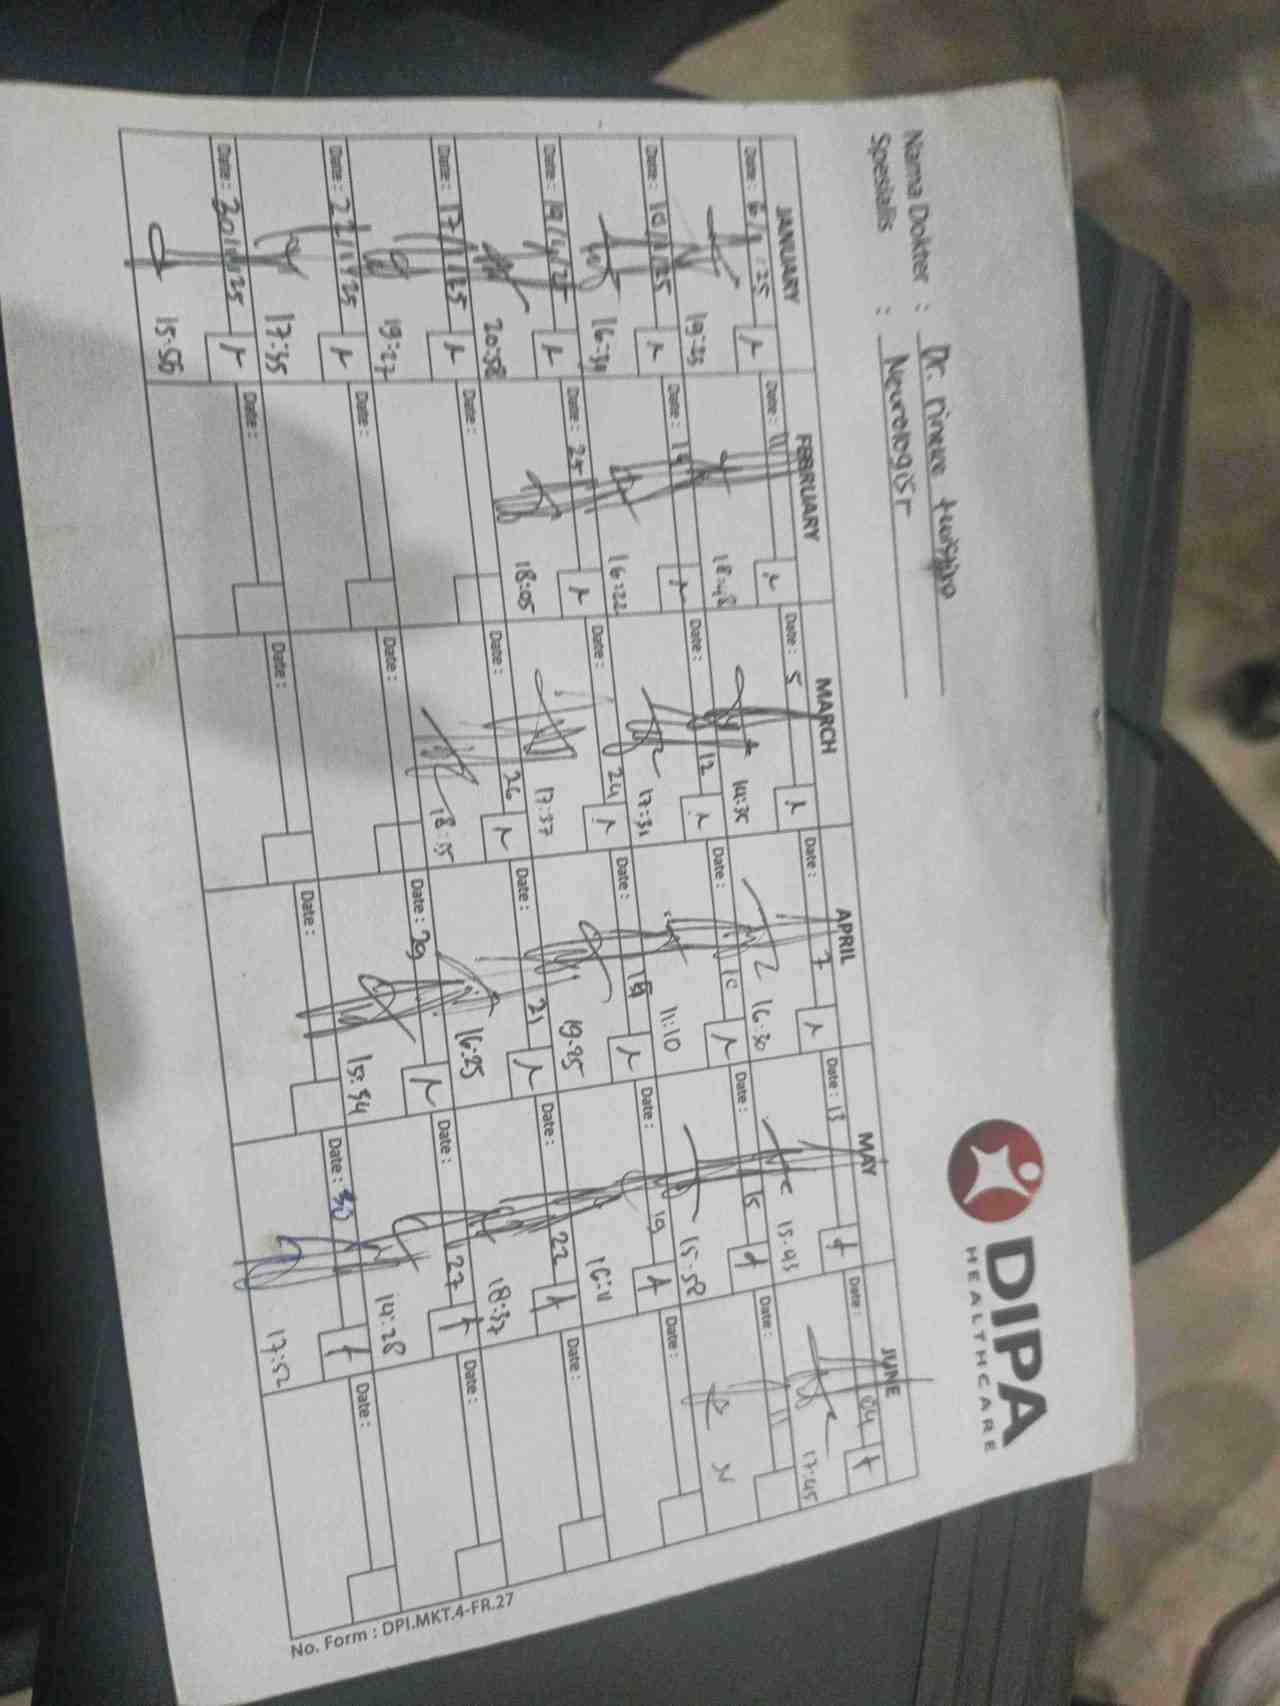 DIPA
HEALTHCARE
Nama Dokter : Dr.
Spesialis : Neurologist
JANUARY FEBRUARY MARCH APRIL MAY JUNE
Date: 6/1/25 Date: 11 Date: 5 Date: 7 Date: 13 Date: 04
19:33 18:48 14:35 16:30 15.43 17:45
Date: 10/1/25 Date: 14 Date: 12 Date: 10 Date: 15 Date: 11
16:30 16:22 17:31 11:10 15:58
Date: Date: 25 Date: 24 Date: Date: 19 Date:
20:58 18:05 17:37 19.25 16:11
Date: 17/1/25 Date: Date: 26 Date: 21 Date: 22 Date:
19:27 18:15 16:25 18:37
Date: 22/1/25 Date: Date: Date: 29 Date: 27 Date:
17:35 15:54 14:28
Date: 30/1/25 Date: Date: Date: Date: 30 Date:
15:56 17:52
No. Form : DPI.MKT.4-FR.27